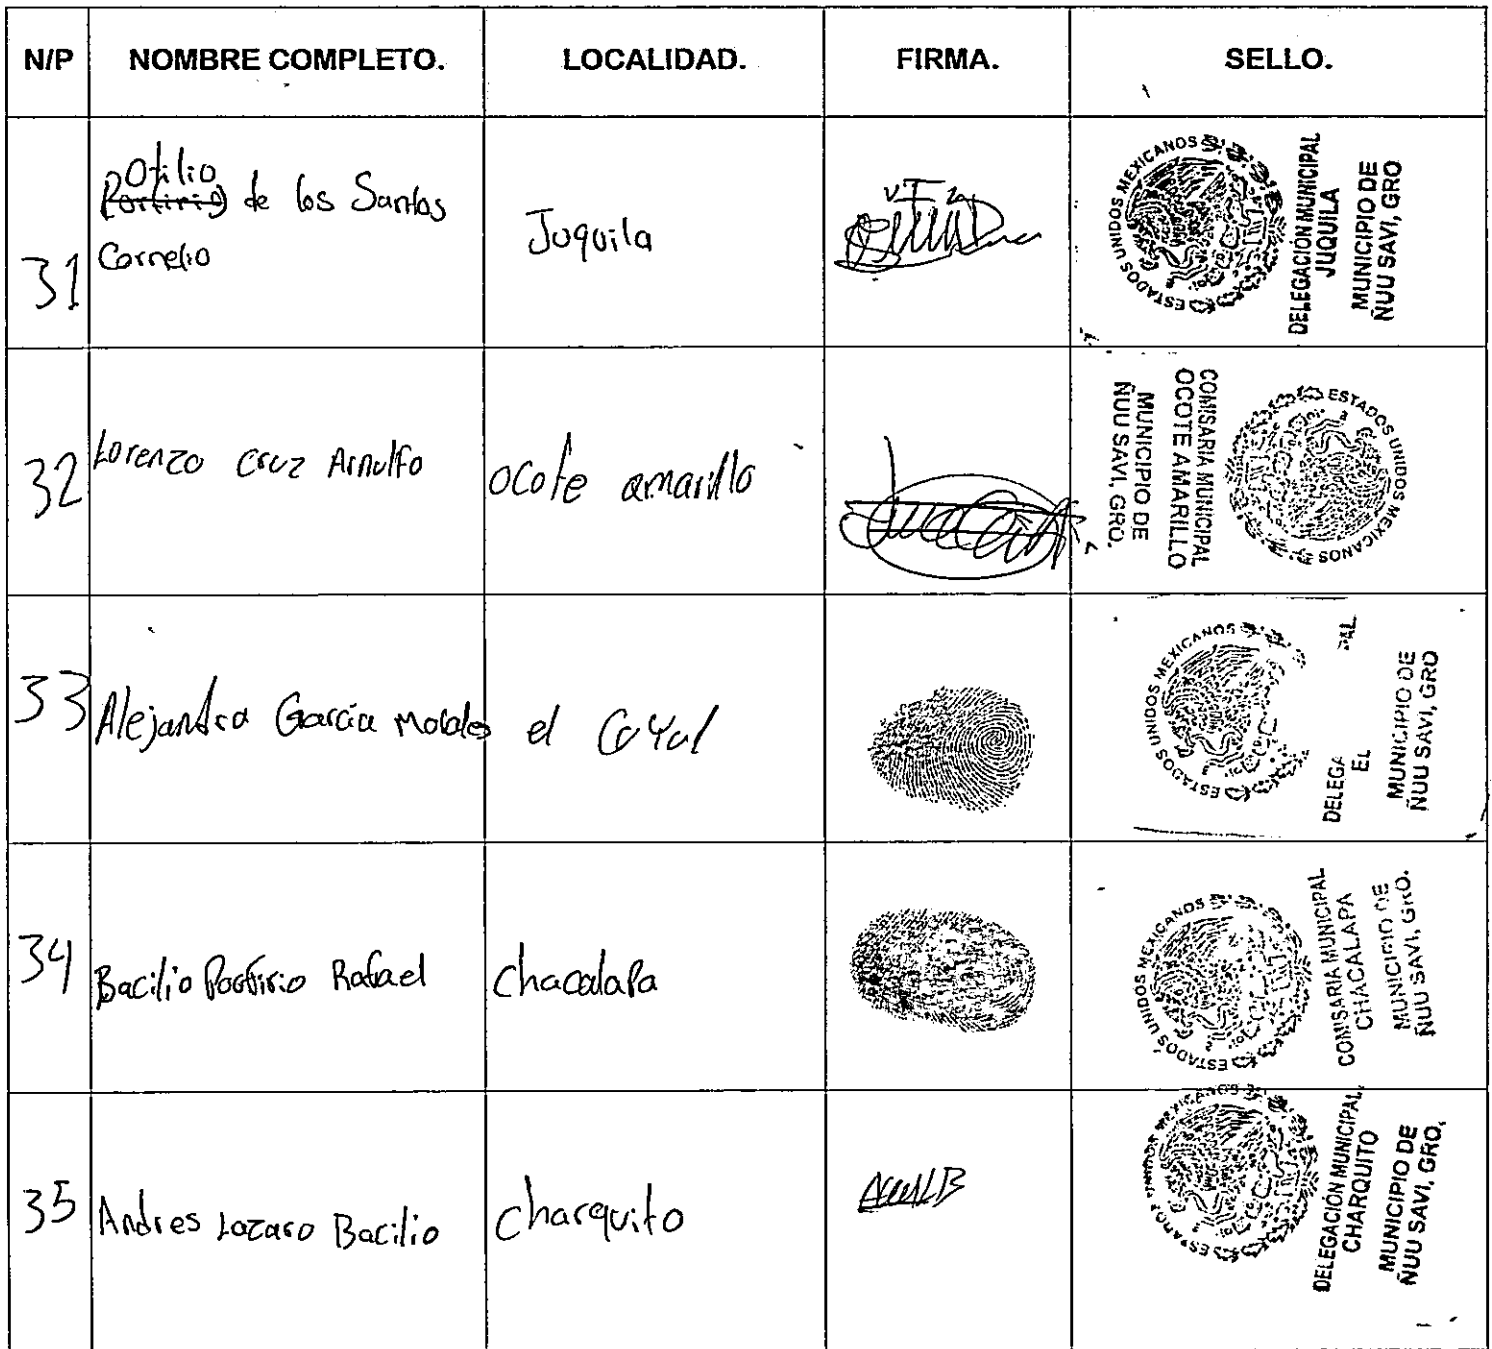 N/P NOMBRE COMPLETO. LOCALIDAD. FIRMA. SELLO.
31 Otilio
Porfirio de los Santos
Cornelio
Juquila
ESTADOS UNIDOS MEXICANOS
DELEGACIÓN MUNICIPAL
JUQUILA
MUNICIPIO DE
ÑUU SAVI, GRO
32 Lorenzo Cruz Arnulfo
Ocote amarillo
ESTADOS UNIDOS MEXICANOS
COMISARIA MUNICIPAL
OCOTE AMARILLO
MUNICIPIO DE
ÑUU SAVI, GRO.
33 Alejandra García Morales
el Coyul
ESTADOS UNIDOS MEXICANOS
DELEGA PAL
EL
MUNICIPIO DE
ÑUU SAVI, GRO
34 Bacilio Porfirio Rafael
Chacalapa
ESTADOS UNIDOS MEXICANOS
COMISARIA MUNICIPAL
CHACALAPA
MUNICIPIO DE
ÑUU SAVI, GRO.
35 Andres Lazaro Bacilio
Charquito
ESTADOS UNIDOS MEXICANOS
DELEGACIÓN MUNICIPAL
CHARQUITO
MUNICIPIO DE
ÑUU SAVI, GRO,